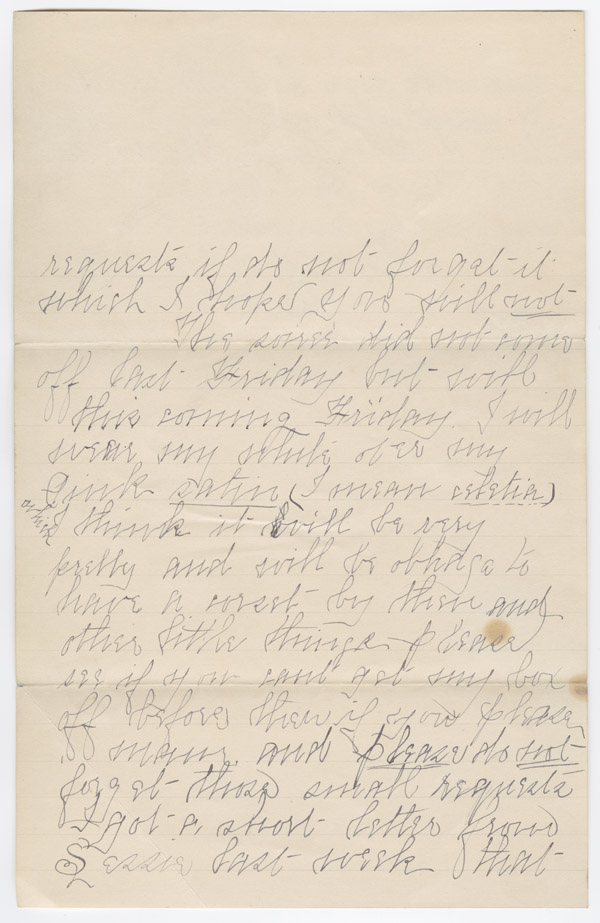 requests if do not forget it
which I hope you will not
The soiree did not come
off last Friday but will
this coming Friday. I will
wear my white over my
pink satin (I mean céletia)
which
I think it will be very
pretty and will be oblidge to
have a corset by then and
other little things please
see if you cant get my box
off before then if you please
mama, and please do not
forget those small requests
I got a short letter from
Lessie last week that